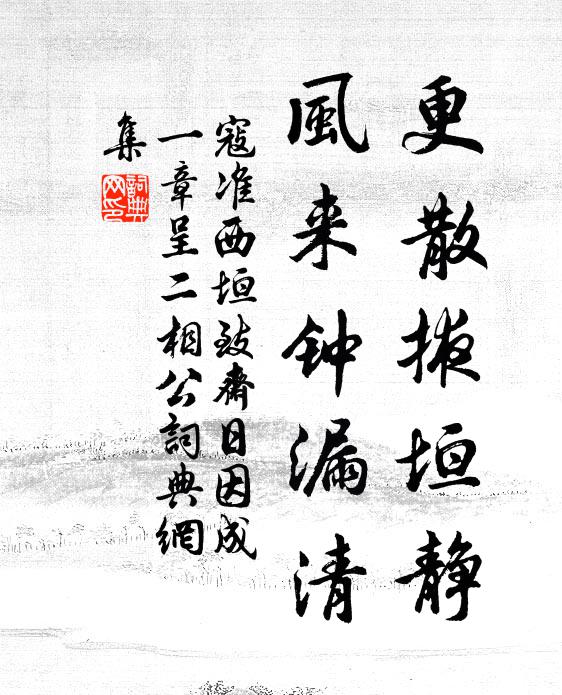 更散掖垣静
風来钟漏清
寇准西垣致斎日因成
一章呈二相公詞典網
集
詞典
网印